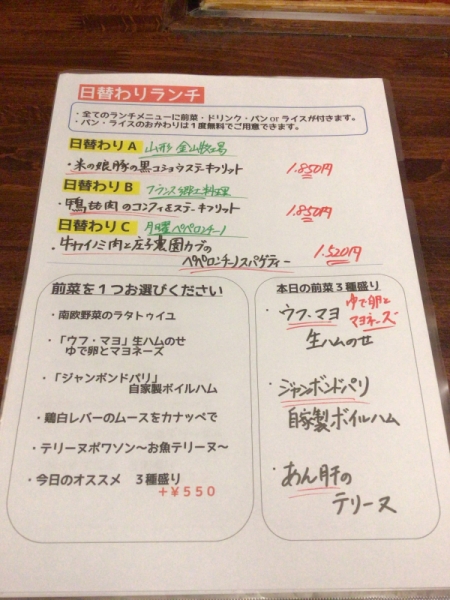 日替わりランチ
・全てのランチメニューに前菜・ドリンク・パン or ライスが付きます。
・パン・ライスのおかわりは１度無料でご用意できます。
日替わり A 山形 金山牧場
・米の娘豚の黒コショウステーキフリット 1.850円
日替わり B フランス郷土料理
・鴨もも肉のコンフィ&ステーキフリット 1.850円
日替わり C 月曜ペペロンチーノ
・牛カイノミ肉と庄子農園カブの
ペペロンチーノスパゲティー 1.520円
前菜を１つお選びください
・南欧野菜のラタトゥイユ
・「ウフ・マヨ」生ハムのせ
ゆで卵とマヨネーズ
・「ジャンボンドパリ」
自家製ボイルハム
・鶏白レバーのムースをカナッペで
・テリーヌポワソン～お魚テリーヌ～
・今日のオススメ　３種盛り
＋￥５５０
本日の前菜３種盛り
ウフ・マヨ ゆで卵と
マヨネーズ
生ハムのせ
ジャンボンドパリ
自家製ボイルハム
あん肝の
テリーヌ